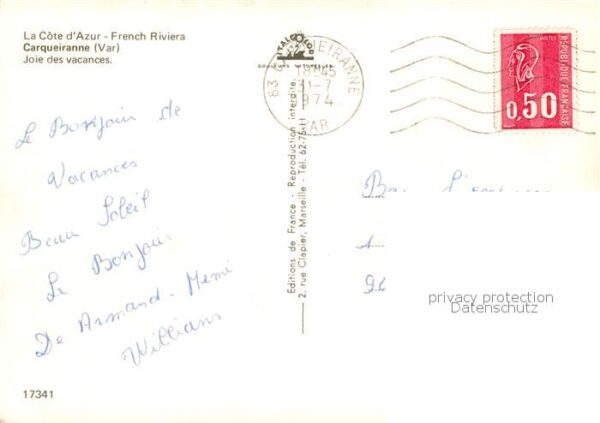 La Côte d'Azur - French Riviera
Carqueiranne (Var)
Joie des vacances.
Le Bonjour de
Vacances
Beau Soleil
Le Bonjour
De Armand - Mémé
Willians
17341
Editions de France - Reproduction interdite.
2, rue Clapier, Marseille - Tél. 62-75-11
ITALCOLOR
83 CARQUEIRANNE
18H45
31-7
1974
VAR
RÉPUBLIQUE FRANÇAISE
0,50
privacy protection
Datenschutz